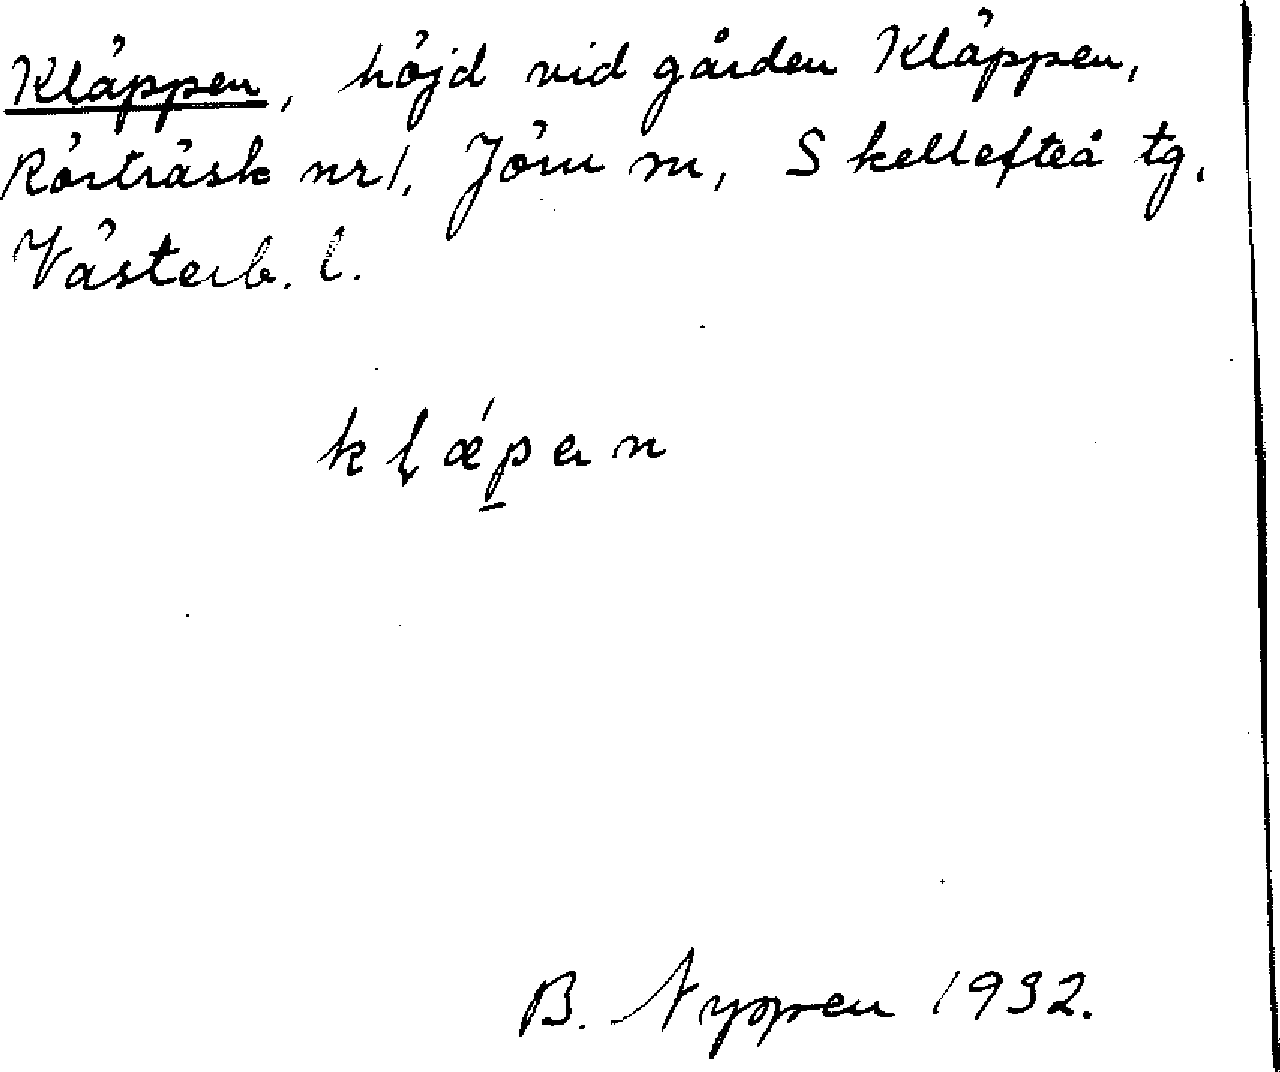 Kläppen, höjd vid gården Kläppen,
Rörträsk nr 1, Jörn sn, Skellefteå tg.
Västerb. l.
kḷæ´p̱ən
B. Nyppen 1932.